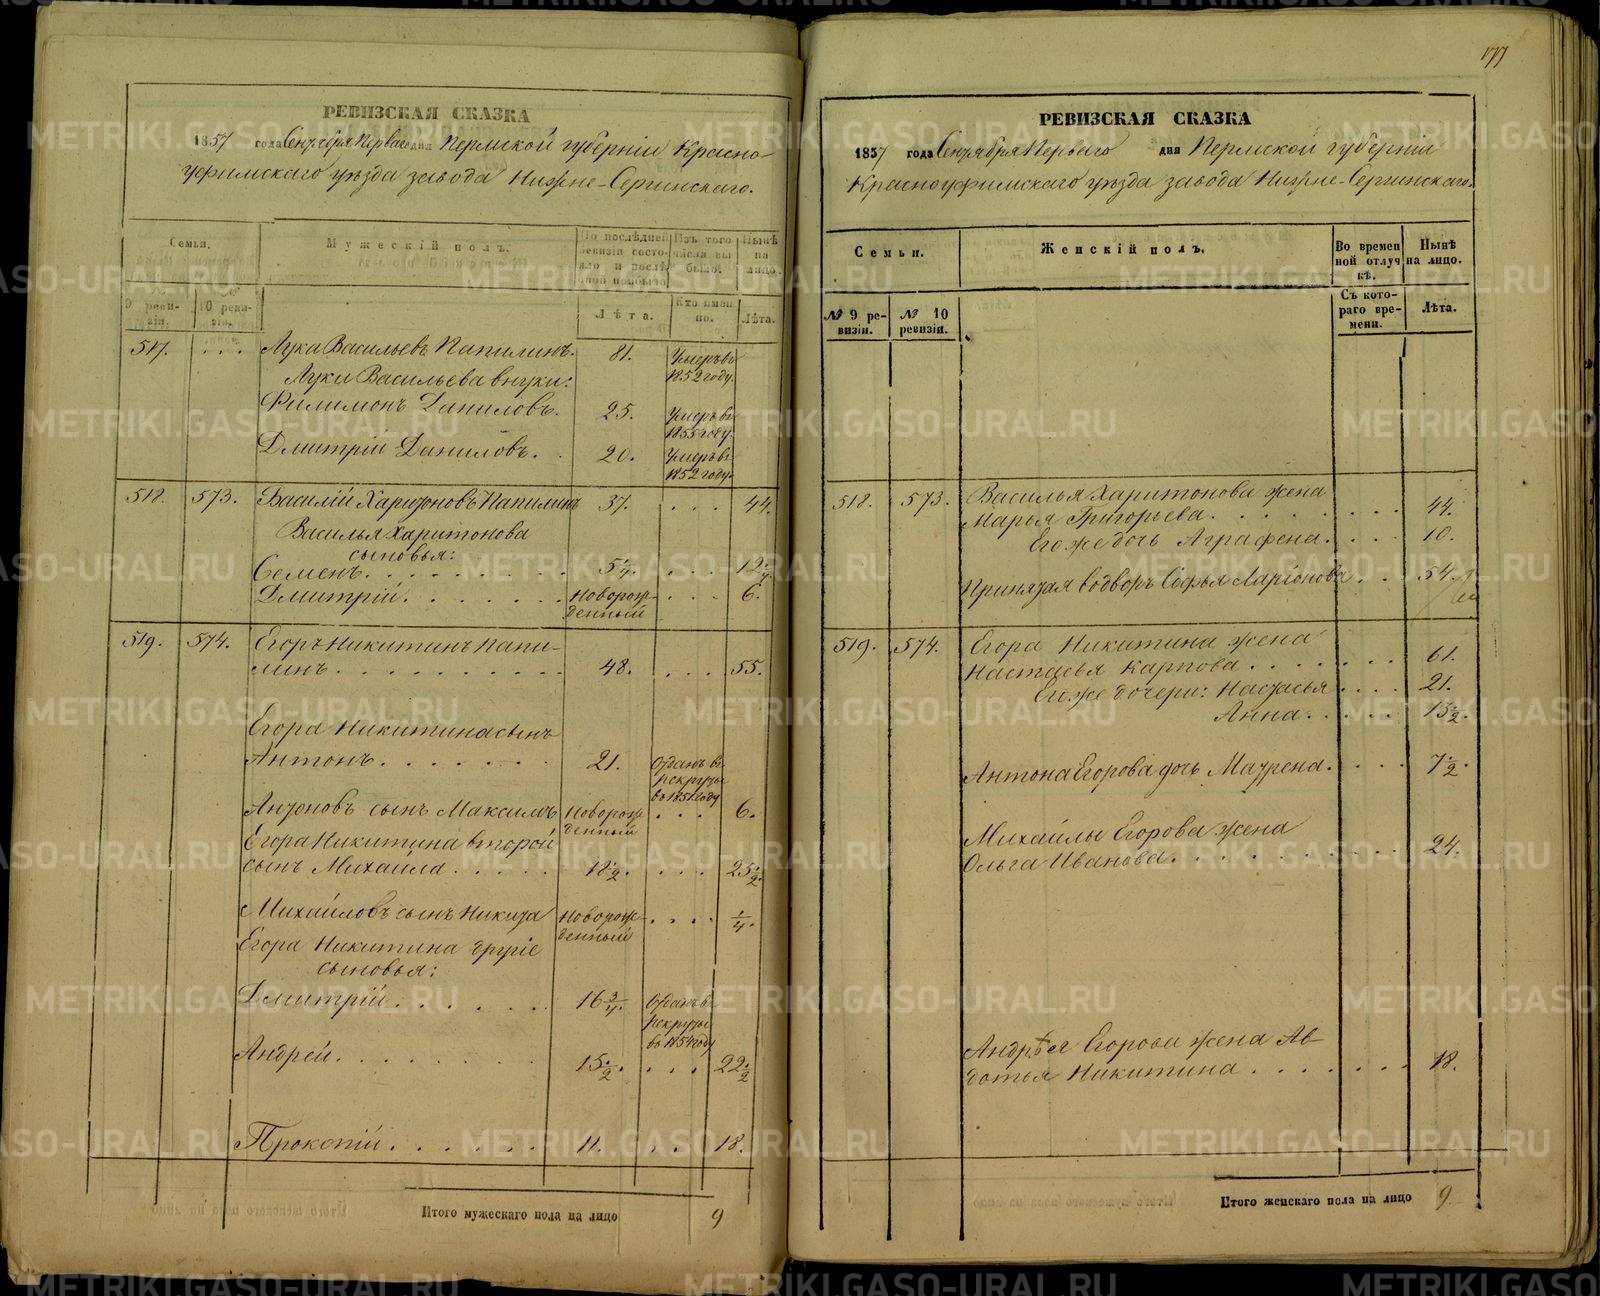 РЕВИЗСКАЯ СКАЗКА
1857 года Сентября Перваго дня Пермской губерніи Красно-
уфимскаго уѣзда завода Нижне-Сергинскаго.
Семьи.
Мужескій полъ.
По послѣдней ревизіи состояло и послѣ оной прибыло.
Изъ того числа выбыло.
Нынѣ на лицо.
9 ревизіи.
10 ревизіи.
Лѣта.
Кто именно.
Лѣта.
517. . . . Лука Васильевъ Папилинъ. 81. Умеръ въ
1852 году.
Луки Васильева внуки:
Филимонъ Даниловъ. 25. Умеръ въ
1855 году.
Дмитрій Даниловъ. 20. Умеръ въ
1852 году.
518. 573. Василій Харитоновъ Папилинъ 37. . . . 44.
Василья Харитонова
сыновья:
Семенъ. 5 1/4. . . . 12 1/4
Дмитрій. Новорож- . . . 6.
денный
519. 574. Егоръ Никитинъ Папи-
линъ. 48. . . . 55.
Егора Никитина сынъ
Антонъ. 21. Отданъ въ
рекруты
въ 1851 году
Антоновъ сынъ Максимъ Новорож- . . . 6.
денный
Егора Никитина второй
сынъ Михайла. 18 1/2. . . . 25 1/2.
Михайловъ сынъ Никита Новорож- . . . 1/4.
денный
Егора Никитина другіе
сыновья:
Дмитрій. 16 3/4. Отданъ въ
рекруты
въ 1854 году
Андрей. 15 1/2. . . . 22 1/2
Прокопій. 11. . . . 18.
Итого мужескаго пола на лицо 9
177
РЕВИЗСКАЯ СКАЗКА
1857 года Сентября Перваго дня Пермской губерніи
Красноуфимскаго уѣзда завода Нижне-Сергинскаго.
Семьи.
Женскій полъ.
Во времен
ной отлуч
кѣ.
Нынѣ
на лицо.
№ 9 ре-
визіи.
№ 10
ревизіи.
Съ кото-
раго вре-
мени.
Лѣта.
518. 573. Василья Харитонова жена
Марья Григорьева. 44.
Его же дочь Аграфена. 10.
Принятая во дворъ Софья Ларіонова. 54.
519. 574. Егора Никитина жена
Настасья Карпова. 61.
Его же дочери: Настасья 21.
Анна. 15 1/2.
Антона Егорова дочь Маурена. 7 1/2.
Михайлы Егорова жена
Ольга Иванова. 24.
Андрея Егорова жена Ав-
дотья Никитина. 18.
Итого женскаго пола на лицо 9
METRIKI.GASO-URAL.RU